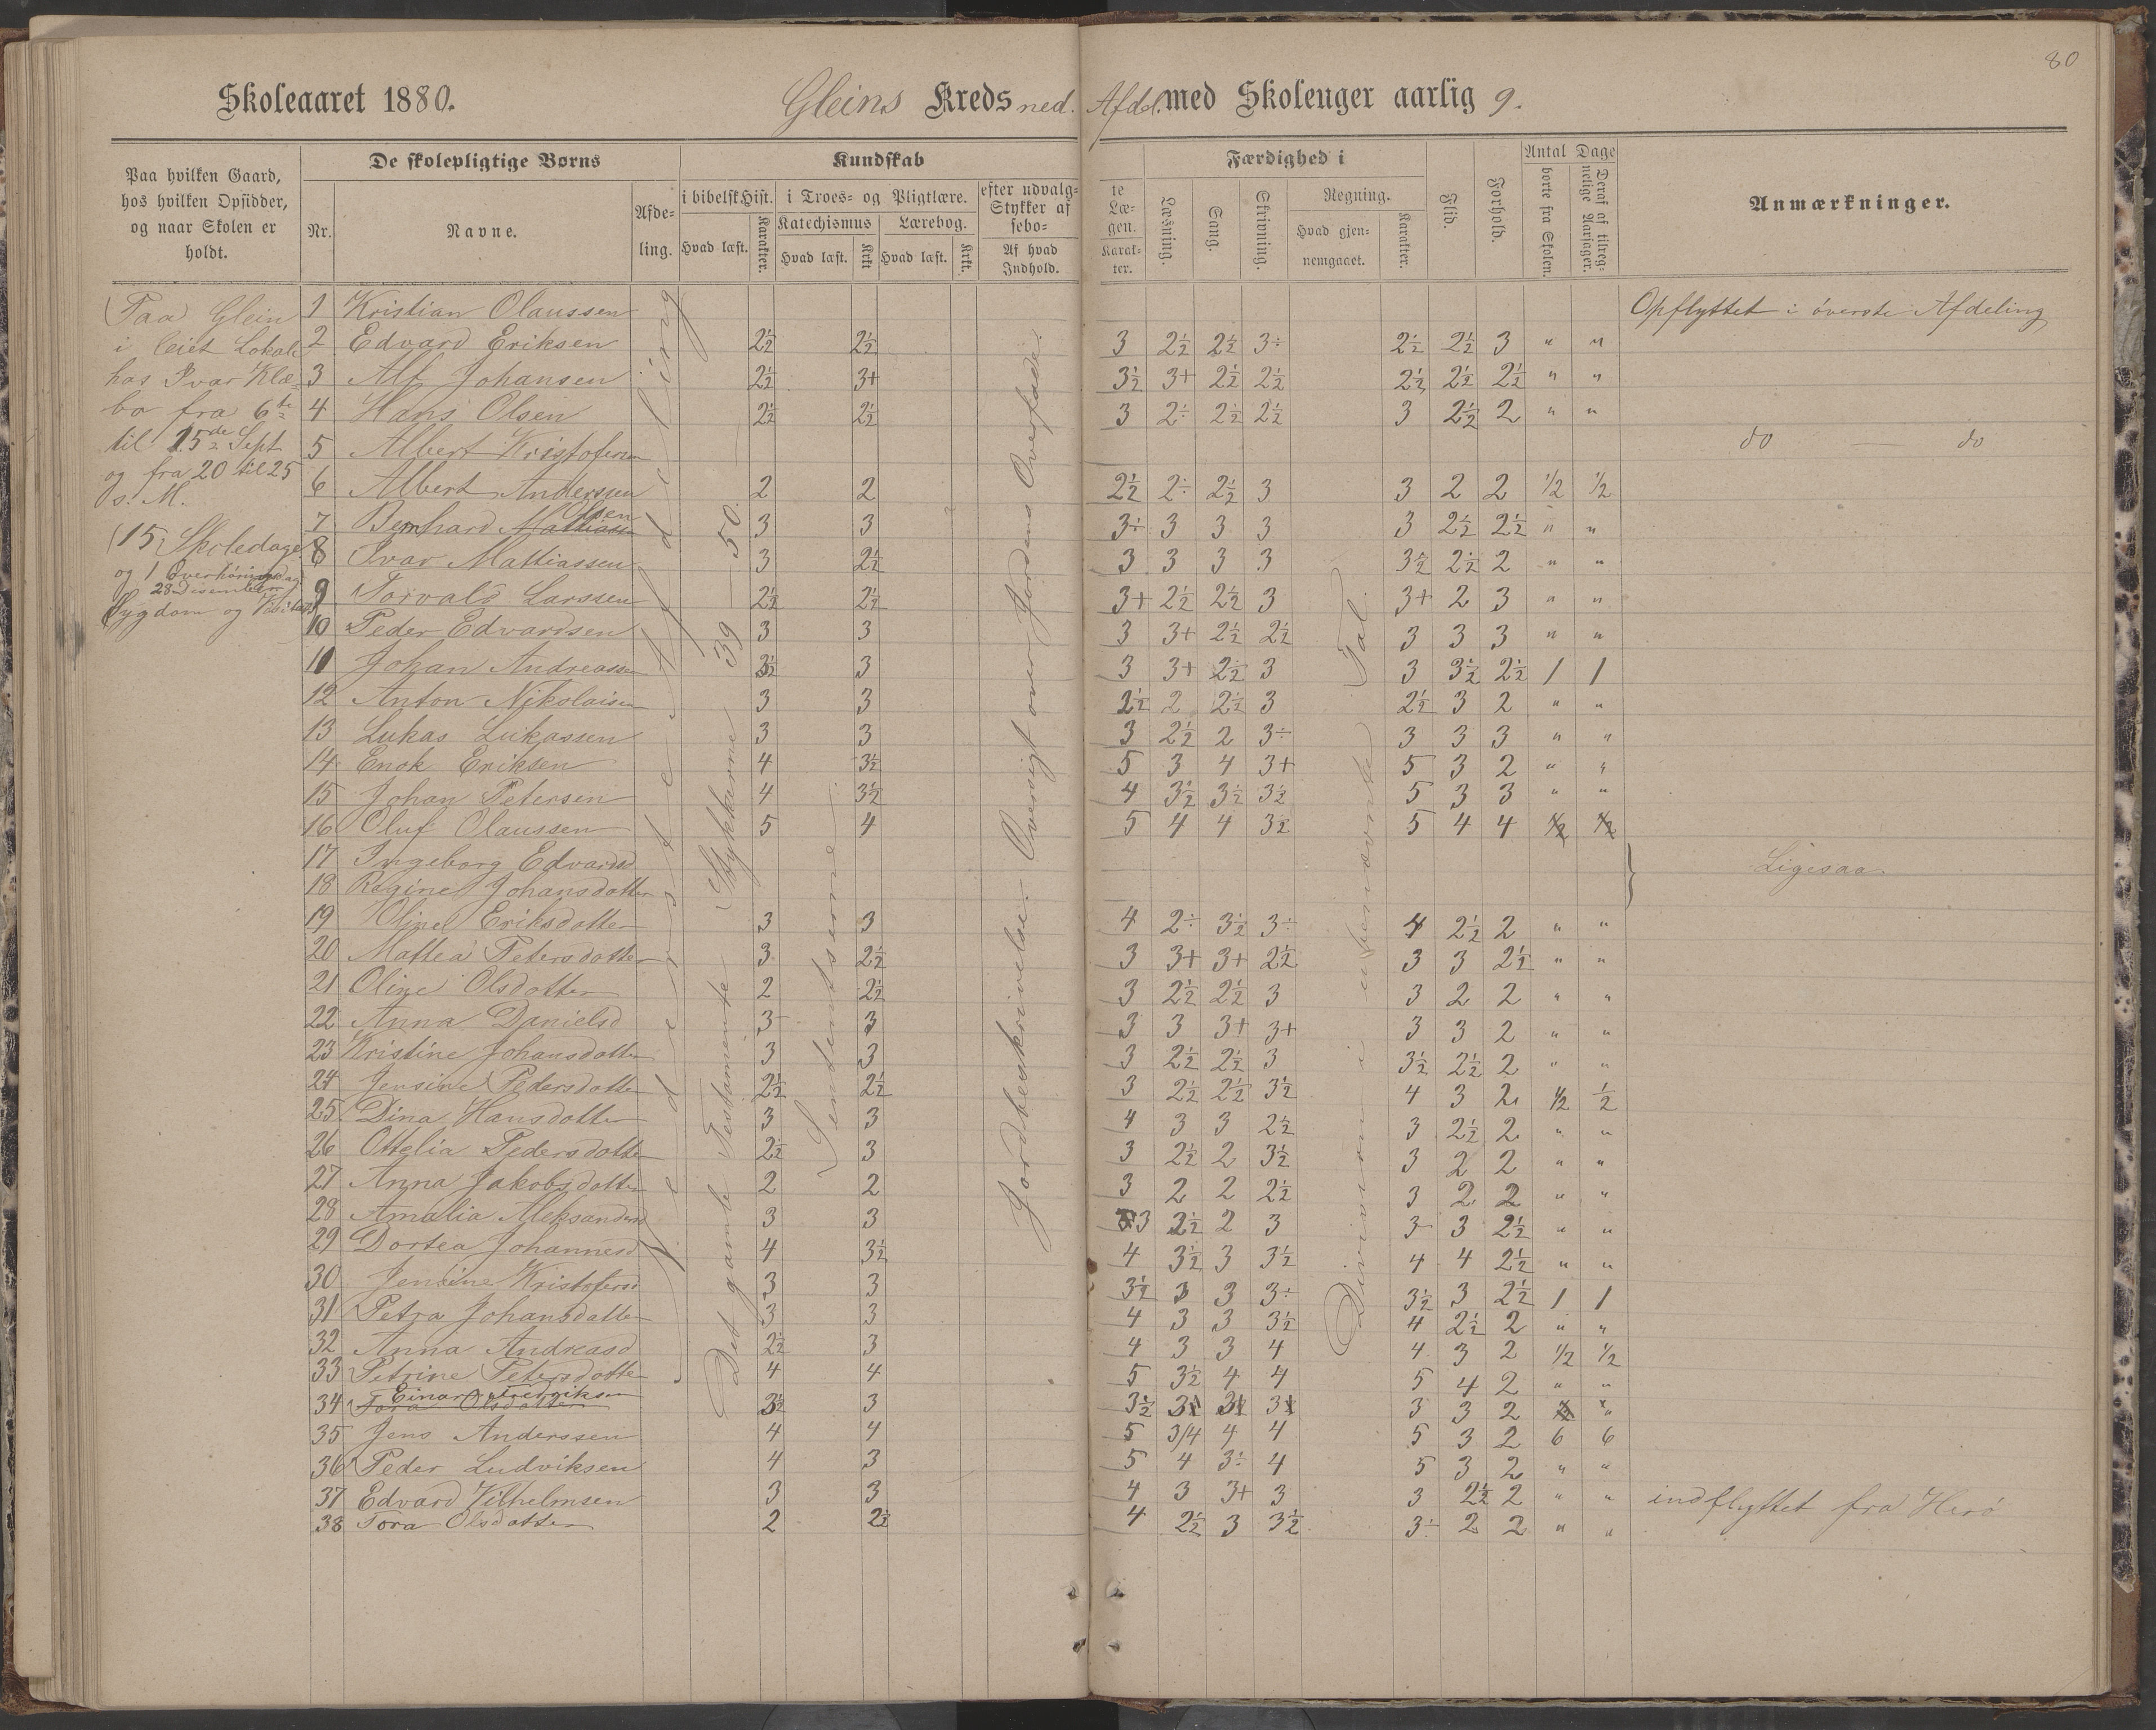 80
Skoleaaret 1880. Gleins Kreds ned. Afdl. med Skolenger aarlig 9.
Paa hvilken Gaard, hos hvilken Opsidder, og naar Skolen er holdt.
De skolepligtige Børns
Nr. Navne. Afdeling.
Kundskab
i bibelsk Hist. i Troes- og Pligtlære. efter udvalgte Stykker af Læsebogen.
Hvad læst. Karakter. Katechismus Hvad læst. Krkt Lærebog. Hvad læst. Krkt. Af hvad Indhold. Karakter.
Færdighed i
Læsning. Sang. Skrivning. Regning. Hvad gjennemgaaet. Karakter.
Flid. Forhold.
Antal Dage
borte fra Skolen. Deraf af tilregnelige Aarsager.
Anmærkninger.
Paa Glein
i leiet Lokale
hos Ivar Klæ-
bo fra 6te
til 15de Sept
og fra 20 til 25
s. M.
(15) Skoledage
og 1 Overhøringsdag
28 Desember
Sygdom og
nederste Afdeling
Det gamle Testamente Stykkerne 39 — 50.
Sententserne
Jordbeskrivelse. Oversigt over Jordens Overflade.
Division i ubenævnte Tal.
1 Kristian Olaussen Opflyttet i øverste Afdeling
2 Edvard Eriksen 2½ 2½ 3 2½ 2½ 3÷ 2½ 2½ 3 " "
3 Alf Johansen 2½ 3+ 3½ 3+ 2½ 2½ 2½ 2½ 2½ " "
4 Hans Olsen 2½ 2½ 3 2÷ 2½ 2½ 3 2½ 2 " "
5 Albert Kristofersen do — do
6 Albert Anderssen 2 2 2½ 2÷ 2½ 3 3 2 2 1/2 1/2
7 Bernhard Mattiasen Olsen 3 3 3÷ 3 3 3 3 2½ 2½ " "
8 Ivar Mattiassen 3 2½ 3 3 3 3 3½ 2½ 2 " "
9 Torvald Larssen 2½ 2½ 3+ 2½ 2½ 3 3+ 2 3 " "
10 Peder Edvardsen 3 3 3 3+ 2½ 2½ 3 3 3 " "
11 Johan Andreassen 3½ 3 3 3+ 2½ 3 3 3½ 2½ 1 1
12 Anton Nikolaisen 3 3 2½ 2 2½ 3 2½ 3 2 " "
13 Lukas Lukassen 3 3 3 2½ 2 3÷ 3 3 3 " "
14 Enok Eriksen 4 3½ 5 3 4 3+ 5 3 2 " "
15 Johan Petersen 4 3½ 4 3½ 3½ 3½ 5 3 3 " "
16 Oluf Olaussen 5 4 5 4 4 3½ 5 4 4 1/2 1/2
17 Ingeborg Edvardsd
18 Regine Johansdotter } Ligesaa.
19 Oline Eriksdotter 3 3 4 2÷ 3½ 3÷ 4 2½ 2 " "
20 Mattea Petersdotter 3 2½ 3 3+ 3+ 2½ 3 3 2½ " "
21 Oline Olsdotter 2 2½ 3 2½ 2½ 3 3 2 2 " "
22 Anna Danielsd 3 3 3 3 3+ 3+ 3 3 2 " "
23 Kristine Johansdotter 3 3 3 2½ 2½ 3 3½ 2½ 2 " "
24 Jensine Pedersdotter 2½ 2½ 3 2½ 2½ 3½ 4 3 2 1/2 1/2
25 Dina Hansdotter 3 3 4 3 3 2½ 3 2½ 2 " "
26 Ottelia Pedersdotter 2½ 3 3 2½ 2 3½ 3 2 2 " "
27 Anna Jakobsdotter 2 2 3 2 2 2½ 3 2 2 " "
28 Amalia Aleksandersd 3 3 3 2½ 2 3 3 3 2½ " "
29 Dortea Johannesd 4 3½ 4 3½ 3 3½ 4 4 2½ " "
30 Jensine Kristofersd 3 3 3½ 3 3 3÷ 3½ 3 2½ 1 1
31 Petra Johansdatter 3 3 4 3 3 3½ 4 2½ 2 " "
32 Anna Andreasd 2½ 3 4 3 3 4 4 3 2 1/2 1/2
33 Petrine Petersdotter 4 4 5 3½ 4 4 5 4 2 " "
34 Tora Olsdotter Einar Fredriksen 3½ 3 3½ 3 3 3 3 3 2
35 Jens Anderssen 4 4 5 3/4 4 4 5 3 2 6 6
36 Peder Ludviksen 4 3 5 4 3÷ 4 5 3 2 " "
37 Edvard Vilhelmsen 3 3 4 3 3+ 3 3 2½ 2 " " indflyttet fra Herö
38 Tora Olsdotter 2 2½ 4 2½ 3 3½ 3÷ 2 2 " "